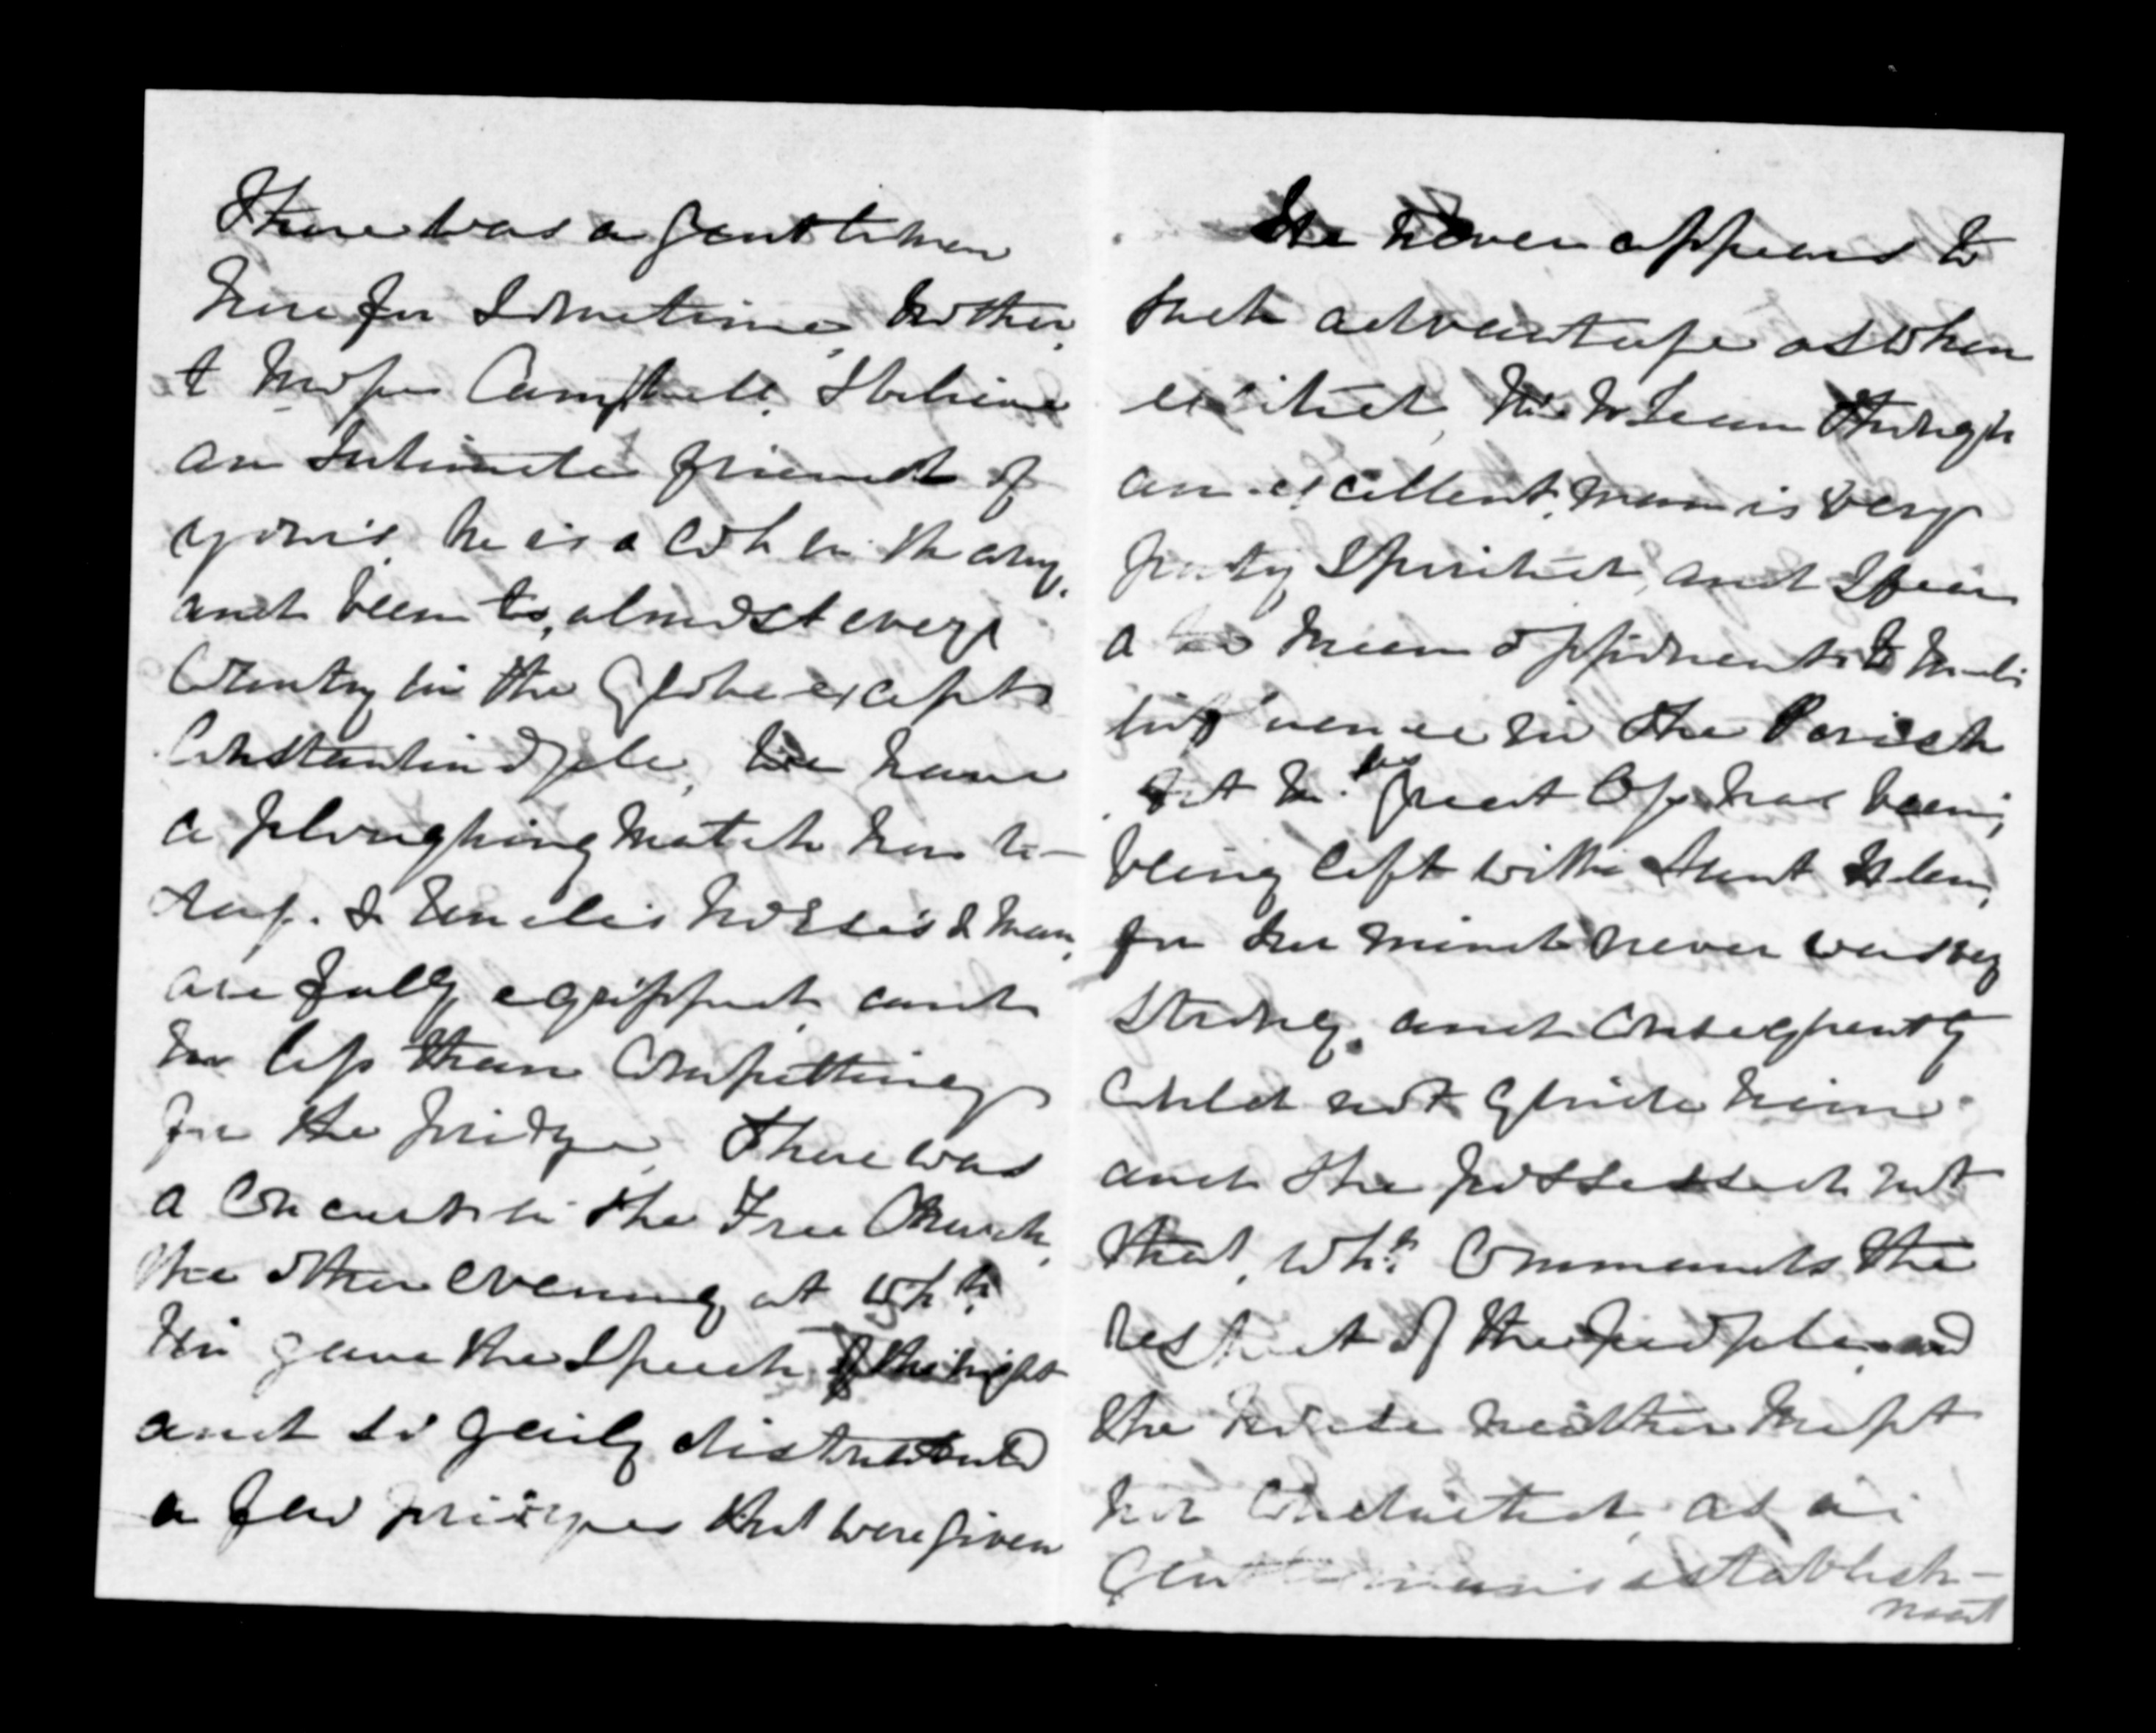 There was a gentleman
here for sometime, brother,
t Campbell, I believe
an intimate friend of
yours, he is a Col. in the army,
and been to, almost every
Country in the Globe except
Constantinople, We have
a ploughing match here to-
day. & Uncle's horses & man,
are fully equipped and
no less than Competting
for the prize, There was
a Concert in the Free Church,
the other evening, at wh.h
gave the Speech of the night
and so gaily distributed
a few prizes that were given
He never appears to
such advantage as when
excited, McLean though
an excellent man is very
party Spirited, and I fear
a mean opponent to
in the Parish
great loss has been,
being left with Aunt Helen,
for her mind never was very
strong, and Consequently
Could not guide him
and she possessed not
that, wh.h Commands the
respect of the people, and
the house neither kept
nor Conducted, as a
Gentleman's establish-
ment